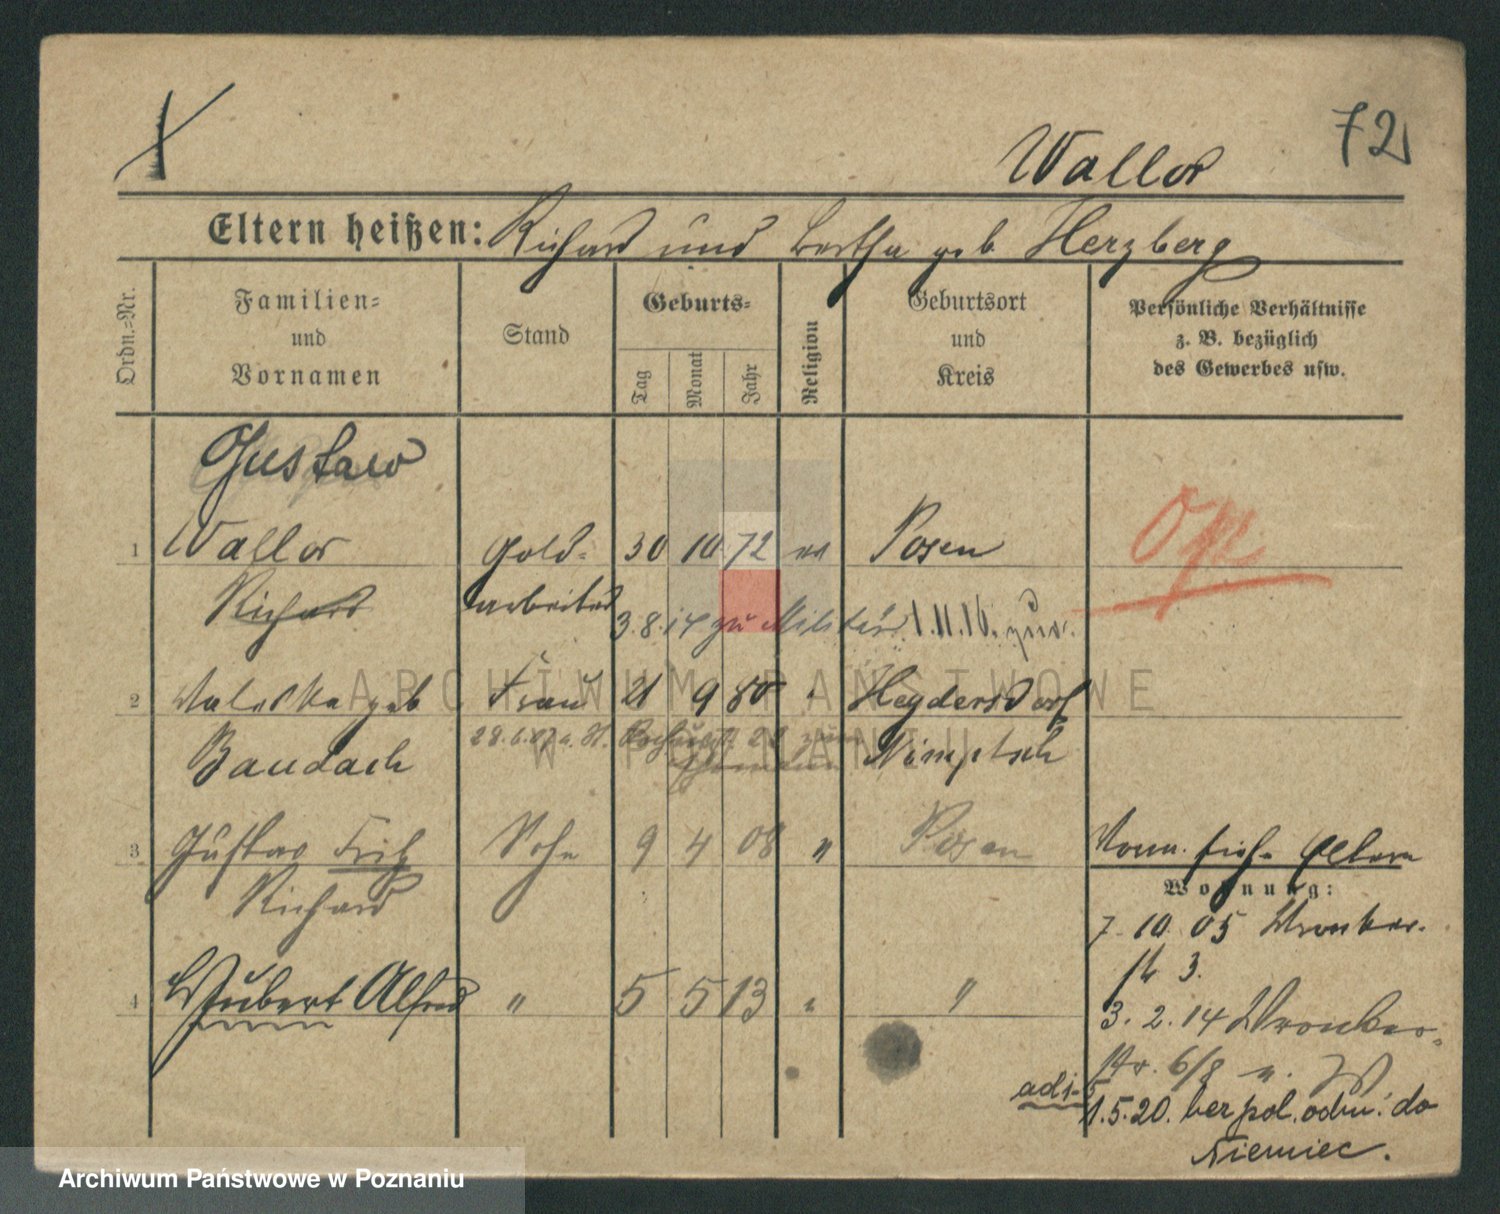 72
Wallor
Eltern heißen: Richard und Bertha geb. Herzberg
Ordn.=Nr.
Familien=
und
Vornamen
Stand
Geburts=
Tag
Monat
Jahr
Religion
Geburtsort
und
Kreis
Persönliche Verhältnisse
z. B. bezüglich
des Gewerbes usw.
Gustaw
1 Wallor Gold= 30 10 72 Posen
Richard arbeiter
3.8.14 zu Militär 1.11.16. zur.
2 Valeska geb Frau 21 9 80 Heydersdorf
28.6.07 Nimptsch
Baudach
3 Gustav Fritz Sohn 9 4 08 " Posen
Richard
4 Hubert Alfred " 5 5 13 " "
Eltern
Wohnung:
7. 10. 05 Wronker-
3.
3. 2. 14 Wronker-
6/8
adi-5
1.5.20. do
Niemiec.
ARCHIWUM PAŃSTWOWE
W POZNANIU
Archiwum Państwowe w Poznaniu